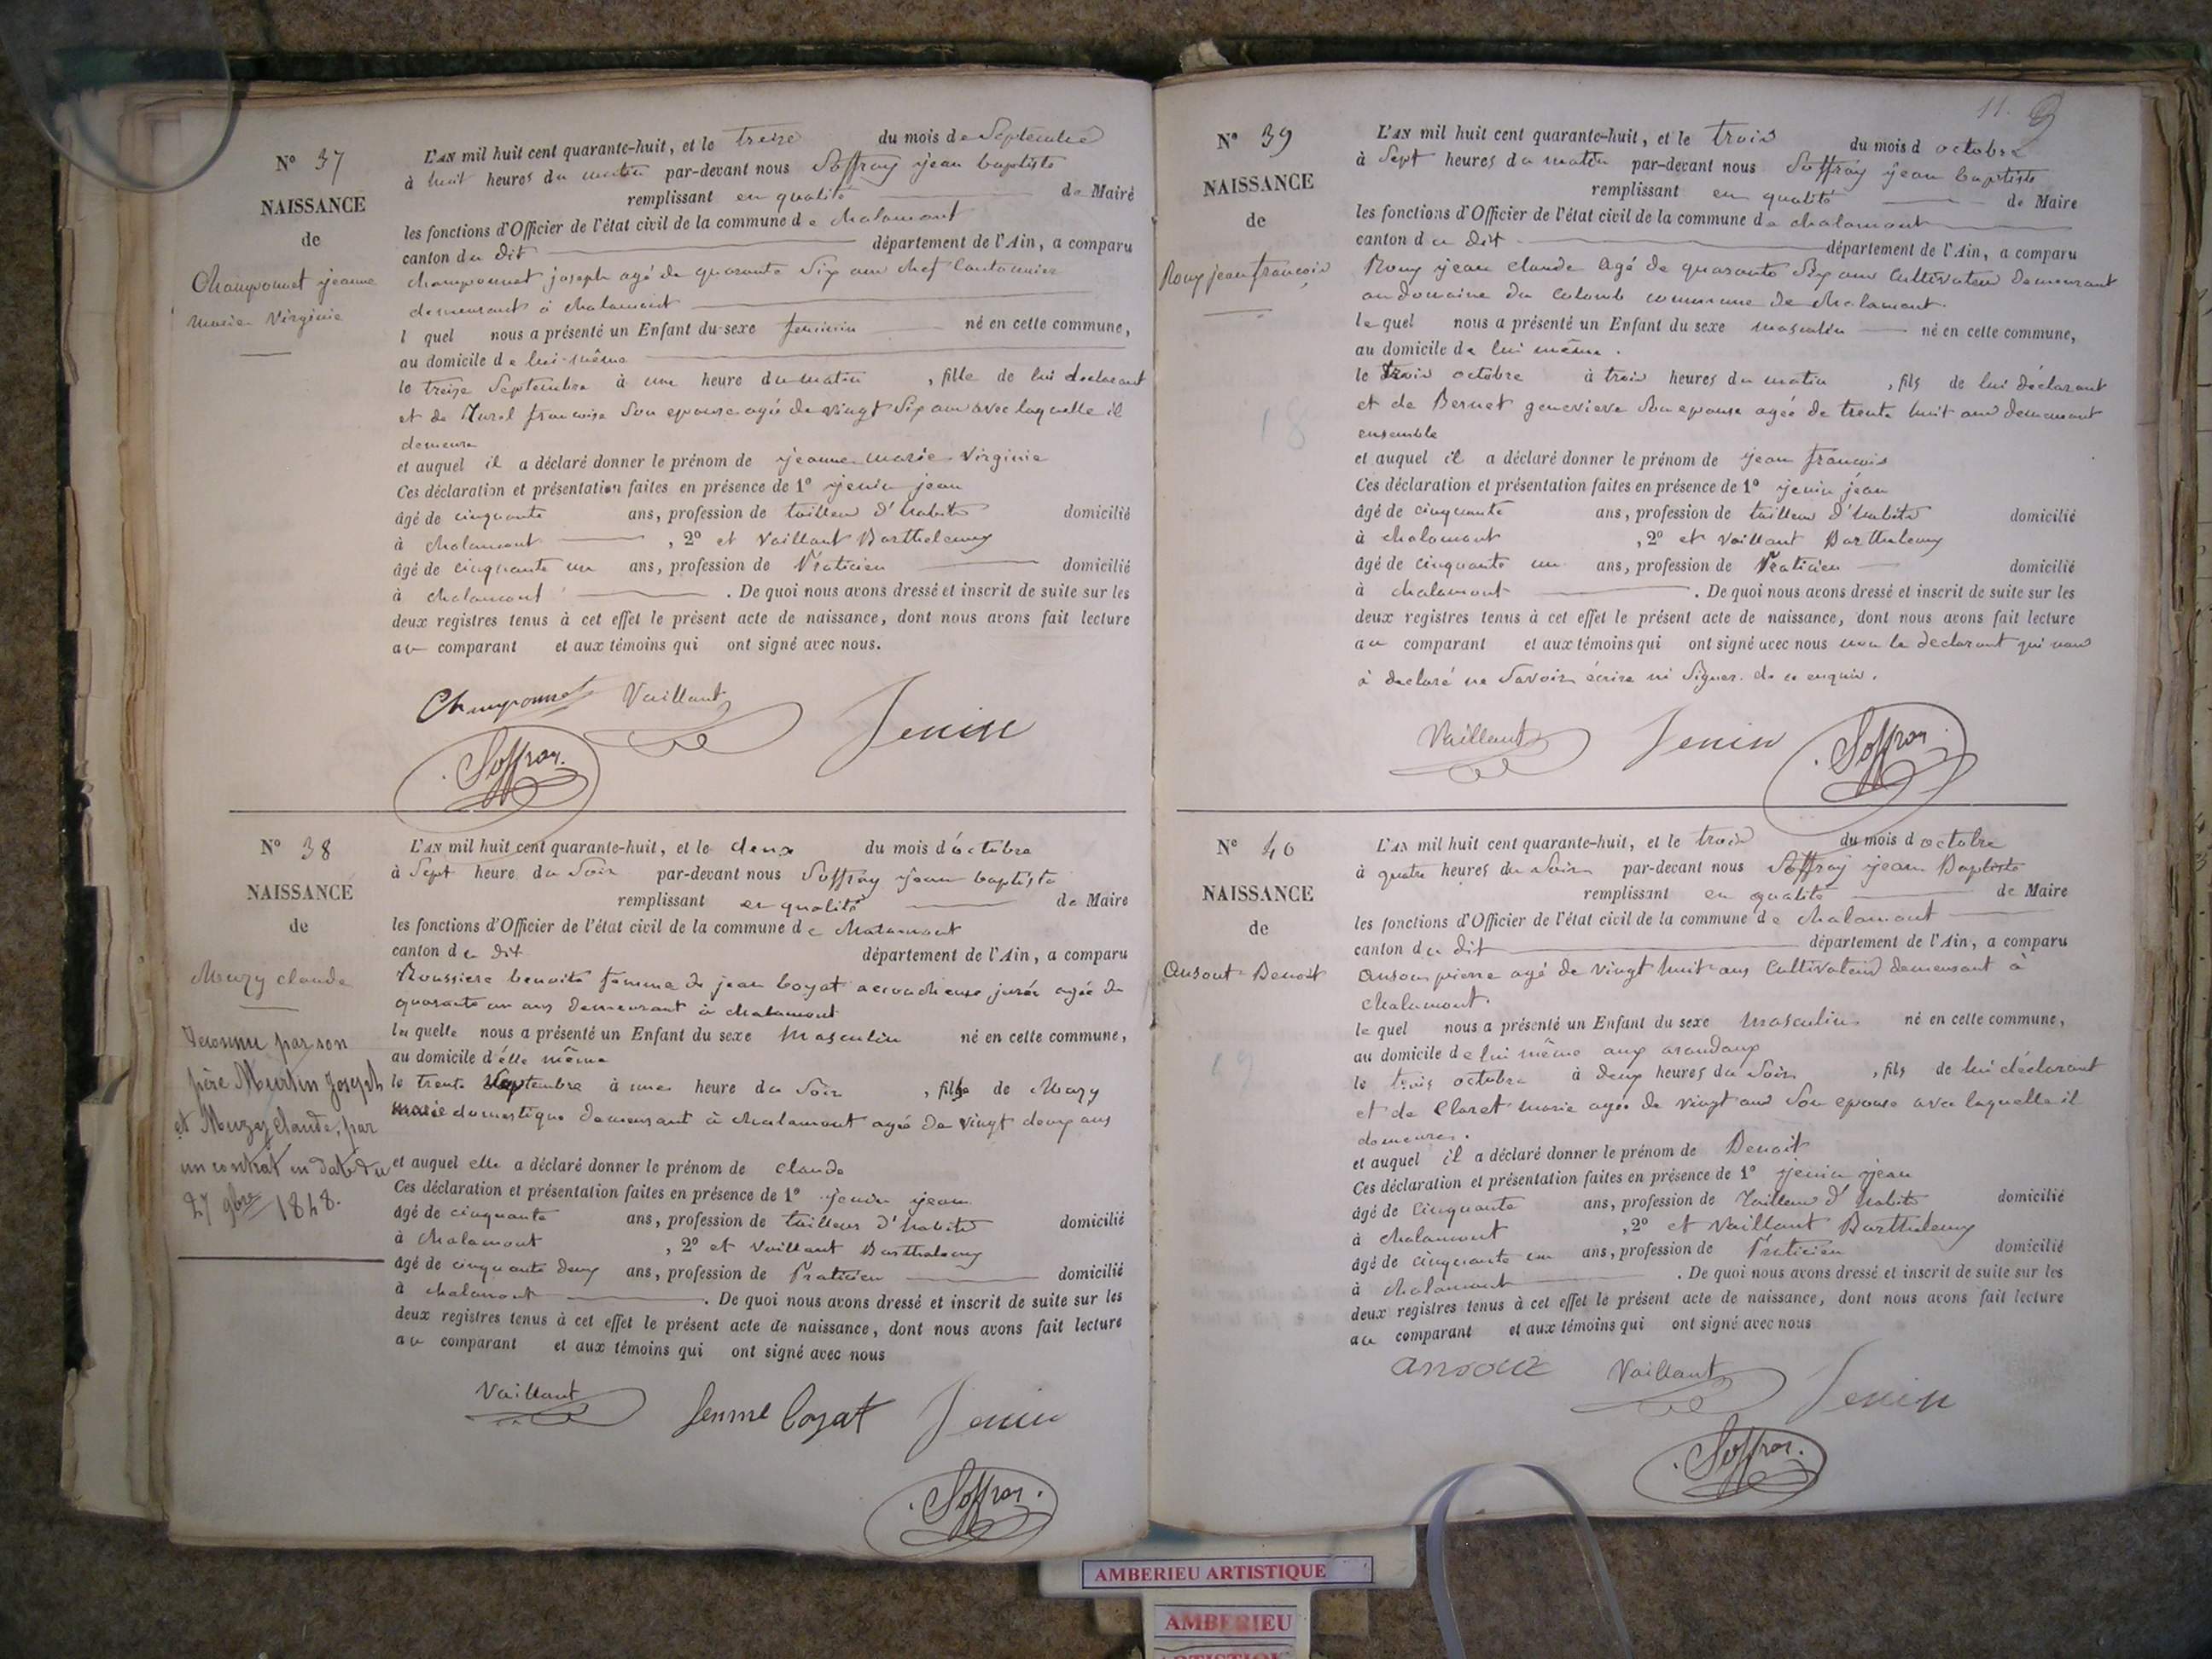 N° 37
NAISSANCE
de
Champonnet jeanne
marie Virginie
L'AN mil huit cent quarante-huit, et le treize du mois de Septembre
à huit heures du matin par-devant nous Soffray jean baptiste
remplissant en qualité de Maire
les fonctions d'Officier de l'état civil de la commune de chalamont
canton du dit département de l'Ain, a comparu
champonnet joseph agé de quarante Six ans chef Cantonnier
demeurant à chalamont
l quel nous a présenté un Enfant du sexe feminin né en cette commune,
au domicile de lui-même
le treize Septembre à une heure du matin, fille de lui declarant
et de Murel francoise Son epouse agée de vingt Six ans avec laquelle il
demeure
et auquel il a déclaré donner le prénom de jeanne marie Virginie
Ces déclaration et présentation faites en présence de 1° jenin jean
âgé de cinquante ans, profession de tailleur d'habits domicilié
à chalamont, 2° et Vaillant Barthelemy
âgé de cinquante un ans, profession de Praticien domicilié
à chalamont. De quoi nous avons dressé et inscrit de suite sur les
deux registres tenus à cet effet le présent acte de naissance, dont nous avons fait lecture
au comparant et aux témoins qui ont signé avec nous.
Champonnet Vaillant Jenin
Soffray
N° 38
NAISSANCE
de
Muzy claude
Reconnu par son
père Murtin Joseph
et Muzy claude, par
un contrat en date du
27 9bre 1848.
L'AN mil huit cent quarante-huit, et le deux du mois d'octobre
à Sept heure du Soir par-devant nous Soffray jean baptiste
remplissant en qualité de Maire
les fonctions d'Officier de l'état civil de la commune de chalamont
canton du dit département de l'Ain, a comparu
Roussiere benoite femme de jean boyat accoucheuse jurée agée de
quarante un ans demeurant à chalamont
la quelle nous a présenté un Enfant du sexe Masculin né en cette commune,
au domicile d'elle même
le trente Septembre à une heure du Soir, fils de Muzy
marie domestique demeurant à chalamont agée de vingt deux ans
et auquel elle a déclaré donner le prénom de claude
Ces déclaration et présentation faites en présence de 1° jenin jean
âgé de cinquante ans, profession de tailleur d'habits domicilié
à chalamont, 2° et Vaillant Barthelemy
âgé de cinquante deux ans, profession de Praticien domicilié
à chalamont. De quoi nous avons dressé et inscrit de suite sur les
deux registres tenus à cet effet le présent acte de naissance, dont nous avons fait lecture
au comparant et aux témoins qui ont signé avec nous
Vaillant femme boyat Jenin
Soffray
11.
N° 39
NAISSANCE
de
Rouy jean francois
18
L'AN mil huit cent quarante-huit, et le trois du mois d octobre
à Sept heures du matin par-devant nous Soffray jean baptiste
remplissant en qualité de Maire
les fonctions d'Officier de l'état civil de la commune de chalamont
canton du dit département de l'Ain, a comparu
Rouy jean claude agé de quarante Six ans Cultivateur demeurant
au domaine du Colomb commune de chalamont.
le quel nous a présenté un Enfant du sexe masculin né en cette commune,
au domicile de lui même.
le trois octobre à trois heures du matin, fils de lui déclarant
et de Bernet genevieve Son epouse agée de trente huit ans demeurant
ensemble
et auquel il a déclaré donner le prénom de jean francois
Ces déclaration et présentation faites en présence de 1° jenin jean
âgé de cinquante ans, profession de tailleur d'habits domicilié
à chalamont, 2° et Vaillant Barthelemy
âgé de cinquante un ans, profession de Praticien domicilié
à chalamont. De quoi nous avons dressé et inscrit de suite sur les
deux registres tenus à cet effet le présent acte de naissance, dont nous avons fait lecture
au comparant et aux témoins qui ont signé avec nous non le declarant qui nous
à declaré ne Savoir écrire ni Signer. de ce enquis.
Vaillant Jenin Soffray
N° 40
NAISSANCE
de
Ansout Benoit
19
L'AN mil huit cent quarante-huit, et le trois du mois d octobre
à quatre heures du Soir par-devant nous Soffray jean Baptiste
remplissant en qualité de Maire
les fonctions d'Officier de l'état civil de la commune de chalamont
canton du dit département de l'Ain, a comparu
pierre agé de vingt huit ans Cultivateur demeurant à
chalamont.
le quel nous a présenté un Enfant du sexe Masculin né en cette commune,
au domicile de lui même aux
le trois octobre à deux heures du Soir, fils de lui déclarant
et de Claret marie agée de vingt ans Son epouse avec laquelle il
demeure.
et auquel il a déclaré donner le prénom de Benoit
Ces déclaration et présentation faites en présence de 1° jenin jean
âgé de Cinquante ans, profession de Tailleur d'habits domicilié
à chalamont, 2° et Vaillant Barthelemy
âgé de cinquante un ans, profession de Praticien domicilié
à chalamont. De quoi nous avons dressé et inscrit de suite sur les
deux registres tenus à cet effet le présent acte de naissance, dont nous avons fait lecture
au comparant et aux témoins qui ont signé avec nous
Vaillant Jenin
Soffray
AMBERIEU ARTISTIQUE
AMBERIEU
ARTISTIQUE